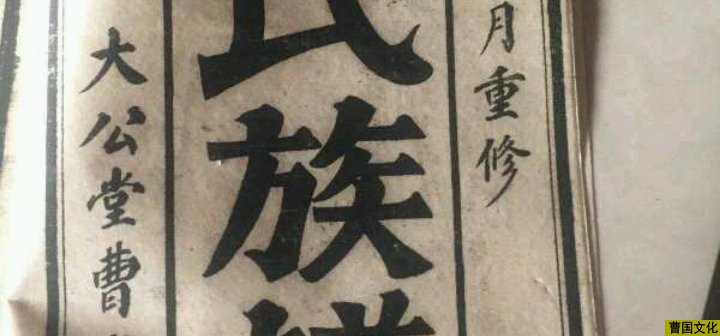 月重修
氏族
大公堂曹
曹国文化